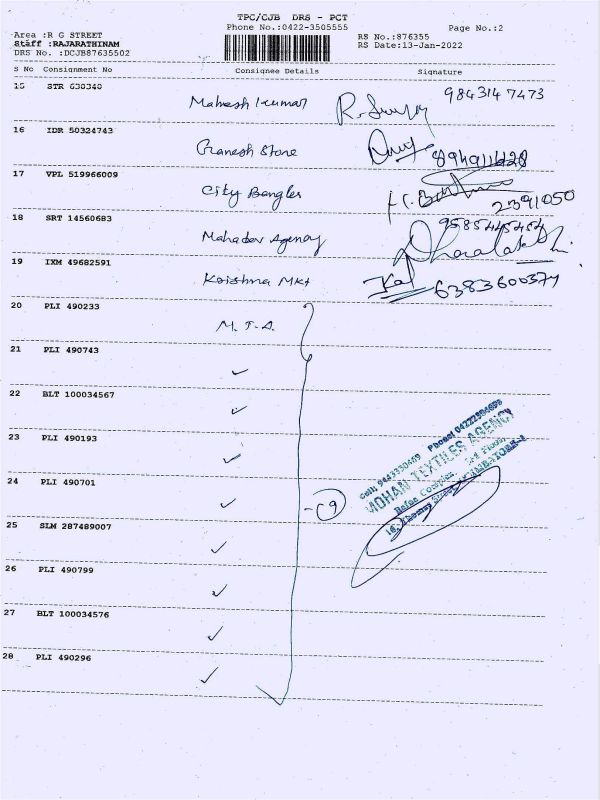 TPC/CJB DRS - PCT
Phone No.:0422-3505555
Page No.:2
Area :R G STREET
Staff :RAJARATHINAM
DRS No. :DCJB87635502
RS No.:876355
RS Date:13-Jan-2022
S No Consignment No Consignee Details Signature
15 STR 630340 Mahesh kumar 9843147473
16 IDR 50324743 Ganesh Store
17 VPL 519966009 City Bangles 2391050
18 SRT 14560683 Mahadev Agency 9585445454
19 IXM 49682591 Krishna Mkt 6383600371
20 PLI 490233 M.T.A.
21 PLI 490743 ✓
22 BLT 100034567 ✓
23 PLI 490193 ✓
24 PLI 490701 ✓
25 SLM 287489007 ✓
26 PLI 490799 ✓
27 BLT 100034576 ✓
28 PLI 490296 ✓
MOHAN TEXTILES AGENCY